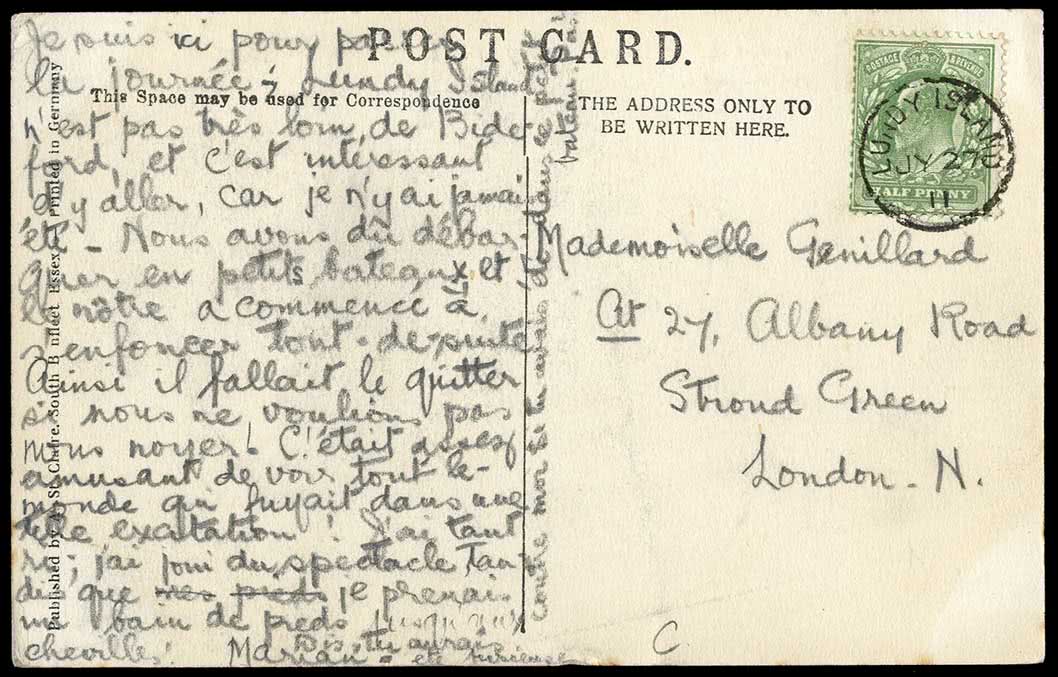 POST CARD.
This Space may be used for Correspondence
THE ADDRESS ONLY TO
BE WRITTEN HERE.
Je suis ici pour passer
la journée; Lundy Island
n'est pas très loin de Bide-
ford, et c'est intéressant
d'y aller, car je n'y ai jamais
été - Nous avons dû débar-
quer en petits bateaux et
le nôtre a commencé à
s'enfoncer tout-de-suite
Ainsi il fallait le quitter
si nous ne voulions pas
nous noyer! C'était assez
amusant de voir tout le
monde qui fuyait dans une
telle exaltation! J'ai tant
ri; j'ai joui du spectacle, tan-
dis que mes pieds je prenais
un bain de pieds jusqu'aux
chevilles! Marian
Dis-tu aurais
été furieuse
comme moi si tu avais été dans ce petit
bateau. pas
Published by St. Claire. South B nfleet Essex. Printed in Germany
POSTAGE & REVENUE
HALF PENNY
LUNDY ISLAND
JY 27
11
Mademoiselle Genillard
At 27, Albany Road
Stroud Green
London - N.
C